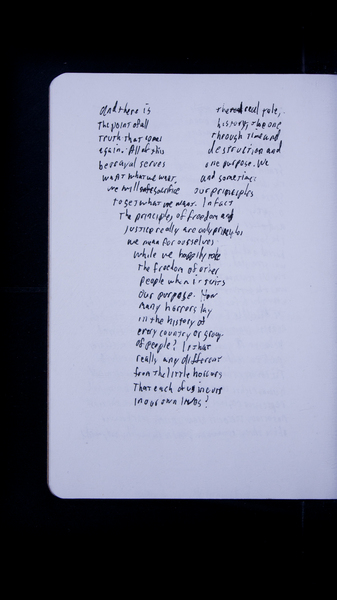 and there is the real rule,
the point of all history, the one
truth that comes through time and
again. All of this destruction and
betrayal serves one purpose. We
want what we want, and sometimes
we will sacrifice our principles
to get what we want. In fact
the principles of freedom and
justice really are only principles
we mean for ourselves
while we happily take
the freedom of other
people when it suits
our purpose. How
many horrors lay
in the history of
every country or group
of people? Is that
really any different
from the little horrors
That each of us incurs
in our own lives?